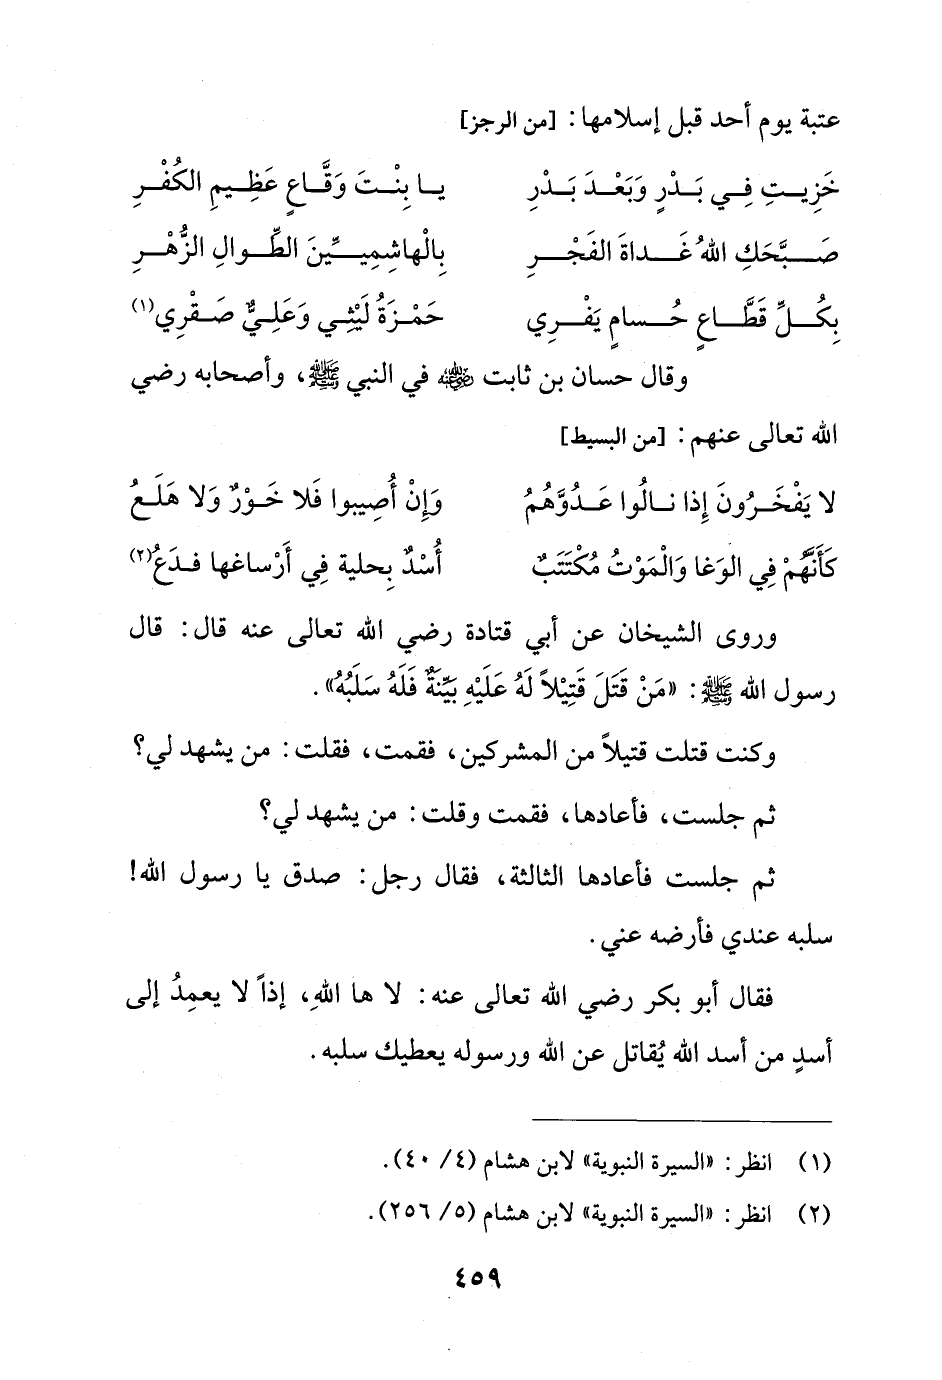 عتبة يوم أحد قبل إسلامها: [من الرجز]
خَزِيــتِ فِــي بَــدْرٍ وَبَعْــدَ بَــدْرِ يــا بِنْــتَ وَقَّــاعٍ عَظِــيمِ الكُفْــرِ
صَــبَّحَكِ اللهُ غَــداةَ الفَجْــرِ بِالْهاشِمِيــيِّنَ الطِّــوالِ الزُّهْــرِ
بِكُــلِّ قَطَّــاعٍ حُــسامٍ يَفْــرِي حَمْــزَةُ لَيْثِــي وَعَلِــيٌّ صَــقْرِي(١)
وقال حسان بن ثابت ﵁ في النبي ﷺ، وأصحابه رضي
الله تعالى عنهم: [من البسيط]
لا يَفْخَــرُونَ إِذا نــالُوا عَــدُوَّهُمُ وَإِنْ أُصِيبوا فَلا خَــوْرٌ وَلا هَلَــعُ
كَأَنَّهُمْ فِي الوَغا وَالْمَوْتُ مُكْتَنَبٌ أُسْدٌ بِحلية فِي أَرْساغها فــدَعُ(٢)
وروى الشيخان عن أبي قتادة رضي الله تعالى عنه قال: قال
رسول الله ﷺ: «مَنْ قَتَلَ قَتِيْلاً لَهُ عَلَيْهِ بَيِّنَةٌ فَلَهُ سَلَبُهُ».
وكنت قتلت قتيلاً من المشركين، فقمت، فقلت: من يشهد لي؟
ثم جلست، فأعادها، فقمت وقلت: من يشهد لي؟
ثم جلست فأعادها الثالثة، فقال رجل: صدق يا رسول الله!
سلبه عندي فأرضه عني.
فقال أبو بكر رضي الله تعالى عنه: لا ها اللهِ، إذاً لا يعمِدُ إلى
أسدٍ من أسد الله يُقاتل عن الله ورسوله يعطيك سلبه.
(١) انظر: «السيرة النبوية» لابن هشام (٤/ ٤٠).
(٢) انظر: «السيرة النبوية» لابن هشام (٥/ ٢٥٦).
٤٥٩